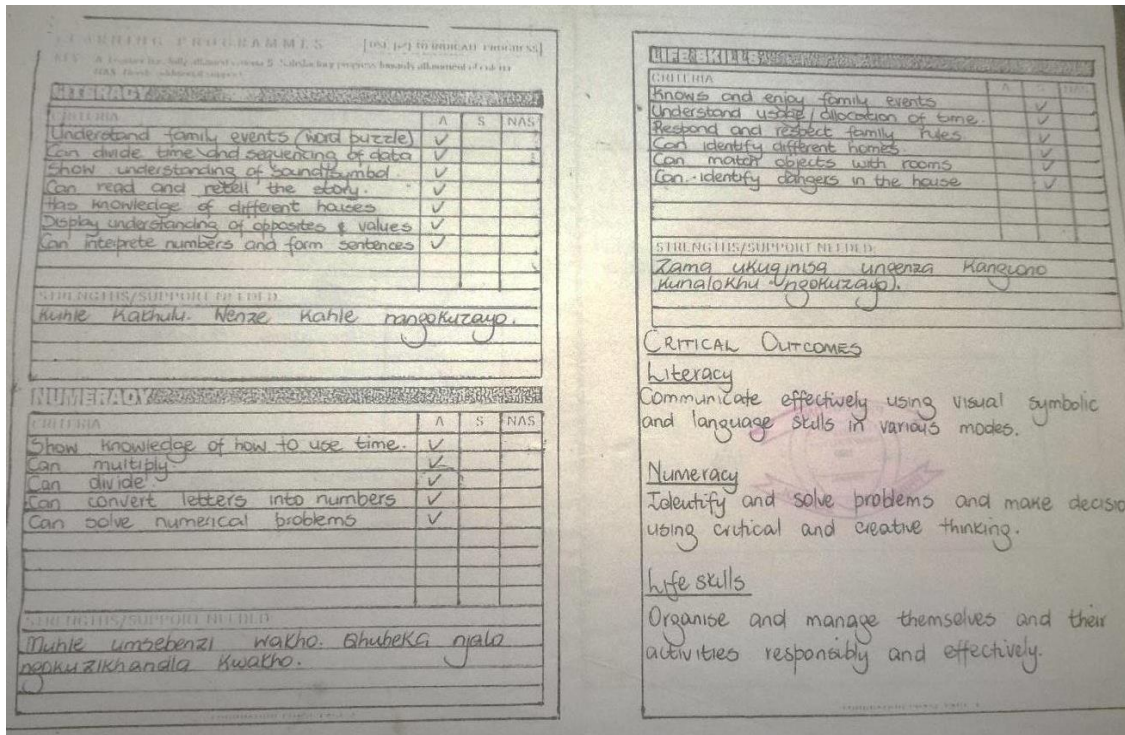 LEARNING PROGRAMMES [USE [✓] TO INDICATE PROGRESS]
LITERACY
CRITERIA A S NAS
Understand family events (word buzzle) ✓
Can divide time and sequencing of data ✓
Show understanding of sound/symbol. ✓
Can read and retell the story. ✓
Has knowledge of different houses ✓
Display understanding of opposites & values ✓
Can inteprete numbers and form sentences ✓
STRENGTHS/SUPPORT NEEDED
Kuhle Kakhulu. Wenze Kahle nangokuzayo.
NUMERACY
CRITERIA A S NAS
Show knowledge of how to use time. ✓
Can multiply ✓
Can divide ✓
Can convert letters into numbers ✓
Can solve numerical problems ✓
STRENGTHS/SUPPORT NEEDED
Muhle umsebenzi wakho. Qhubeka njalo
ngokuzikhandla kwakho.
LIFE SKILLS
CRITERIA A S NAS
Knows and enjoy family events
Understand usage/allocation of time. ✓
Respond and respect family rules. ✓
Can identify different homes. ✓
Can match objects with rooms ✓
Can identify dangers in the house ✓
STRENGTHS/SUPPORT NEEDED
Zama ukuqinisa ungenza kangcono
kunalokhu ngokuzayo).
CRITICAL OUTCOMES
Literacy
Communicate effectively using visual symbolic
and language skills in various modes.
Numeracy
Identify and solve problems and make decisio
using critical and creative thinking.
Life skills
Organise and manage themselves and their
activities responsibly and effectively.